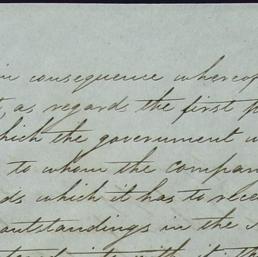 in consequence whereof
, as regards the first p
hich the government w
to whom the compan
ds which it has to rece
outstandings in the
with it th